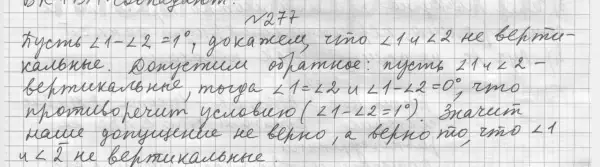 №277
Пусть ∠1-∠2=1°, докажем, что ∠1 и ∠2 не верти-
кальные. Допустим обратное: пусть ∠1 и ∠2 -
вертикальные, тогда ∠1=∠2 и ∠1-∠2=0°, что
противоречит условию (∠1-∠2=1°). Значит
наше допущение не верно, а верно то, что ∠1
и ∠2 не вертикальные.